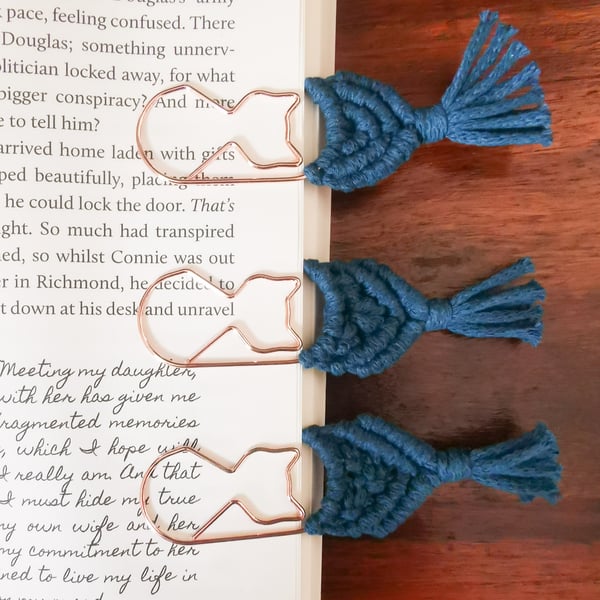 Douglas's army.
pace, feeling confused. There
Douglas; something unnerv-
olitician locked away, for what
bigger conspiracy? And more
e to tell him?
arrived home laden with gifts
ped beautifully, placing them
he could lock the door. That's
ght. So much had transpired
ned, so whilst Connie was out
er in Richmond, he decided to
t down at his desk and unravel
Meeting my daughter,
with her has given me
fragmented memories
, which I hope will
I really am. And that
I must hide my true
my own wife and her
my commitment to her
ned to live my life in